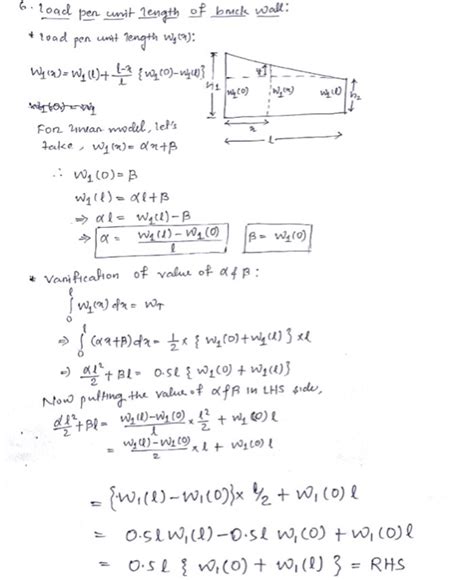 6. Load per unit length of brick wall:
* Load per unit length w₁(x):
w₁(x) = w₁(l) + (l-x)/l {w₁(0) - w₁(l)}
h₁ y w₁(0) w₁(x) w₁(l) h₂
x
l
For linear model, let's
take, w₁(x) = αx+β
∴ w₁(0) = β
w₁(l) = αl+β
⇒ αl = w₁(l) - β
⇒ α = (w₁(l) - w₁(0))/l β = w₁(0)
* Varification of value of α & β:
∫₀ˡ w₁(x) dx = W_T
⇒ ∫₀ˡ (αx+β) dx = 1/2 x {w₁(0) + w₁(l)} x l
⇒ αl²/2 + βl = 0.5l {w₁(0) + w₁(l)}
Now putting the value of α & β in LHS side,
αl²/2 + βl = (w₁(l) - w₁(0))/l x l²/2 + w₁(0) l
= (w₁(l) - w₁(0))/2 x l + w₁(0) l
= {w₁(l) - w₁(0)} x l/2 + w₁(0) l
= 0.5l w₁(l) - 0.5l w₁(0) + w₁(0) l
= 0.5l {w₁(0) + w₁(l)} = RHS